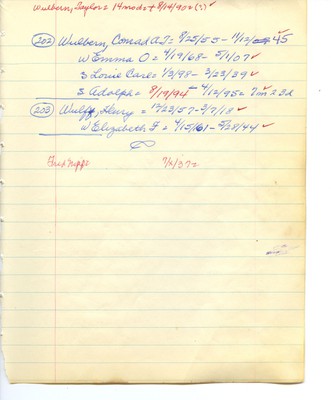 Wulbern, Taylor = 14 mo d = + 8/14/90 = (?) ✓
202 Wulbern, Conrad A.J = 9/25/55 - 11/12/45 ✓
w Emma O = 4/19/68 - 5/1/07 ✓
s Louie Carl = 1/3/98 - 3/23/39 ✓
s Adolph = 8/19/94 - 4/12/95 = 7m 23d
203 Wulff, Henry = 12/23/57 - 3/7/18 ✓
w Elizabeth F = 4/15/61 - 5/28/44 ✓
Fred